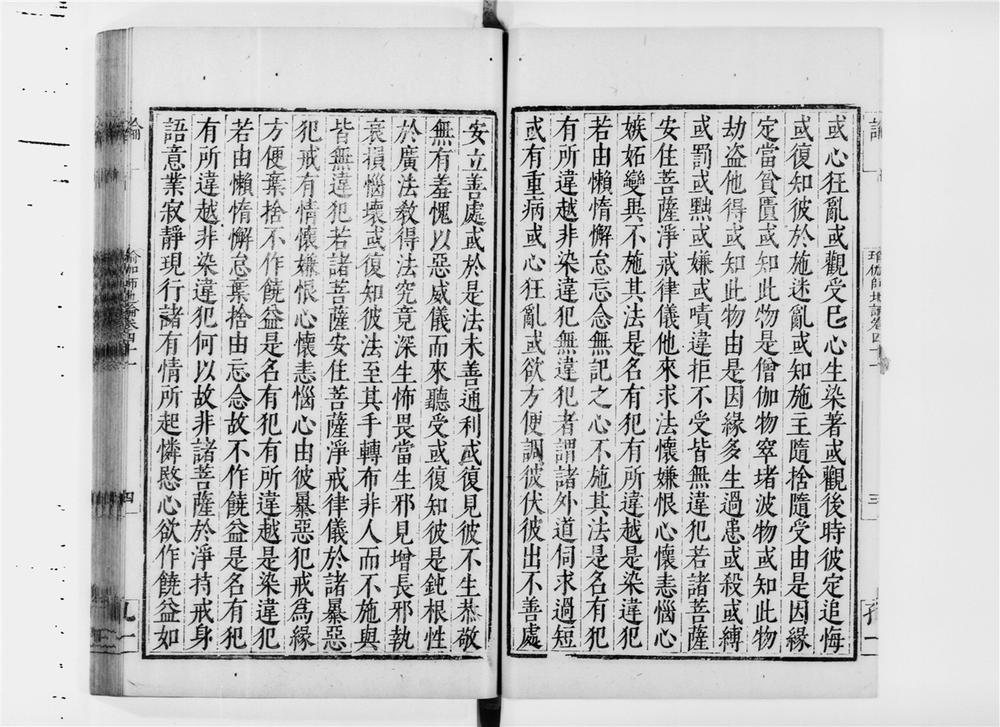 或心狂亂或觀受已心生染著或觀後時彼定追悔
或復知彼於施迷亂或知施主隨捨隨受由是因緣
定當貧匱或知此物是僧伽物窣堵波物或知此物
劫盜他得或知此物由是因緣多生過患或殺或縛
或罰或黜或嫌或嘖違拒不受皆無違犯若諸菩薩
安住菩薩淨戒律儀他來求法懷嫌恨心懷恚惱心
嫉妬變異不施其法是名有犯有所違越是染違犯
若由懶惰懈怠忘念無記之心不施其法是名有犯
有所違越非染違犯無違犯者謂諸外道伺求過短
或有重病或心狂亂或欲方便調彼伏彼出不善處
安立善處或於是法未善通利或復見彼不生恭敬
無有羞愧以惡威儀而來聽受或復知彼是鈍根性
於廣法教得法究竟深生怖畏當生邪見增長邪執
衰損惱壞或復知彼法至其手轉布非人而不施與
皆無違犯若諸菩薩安住菩薩淨戒律儀於諸暴惡
犯戒有情懷嫌恨心懷恚惱心由彼暴惡犯戒為緣
方便棄捨不作饒益是名有犯有所違越是染違犯
若由懶惰懈怠棄捨由忘念故不作饒益是名有犯
有所違越非染違犯何以故非諸菩薩於淨持戒身
語意業寂靜現行諸有情所起憐愍心欲作饒益如